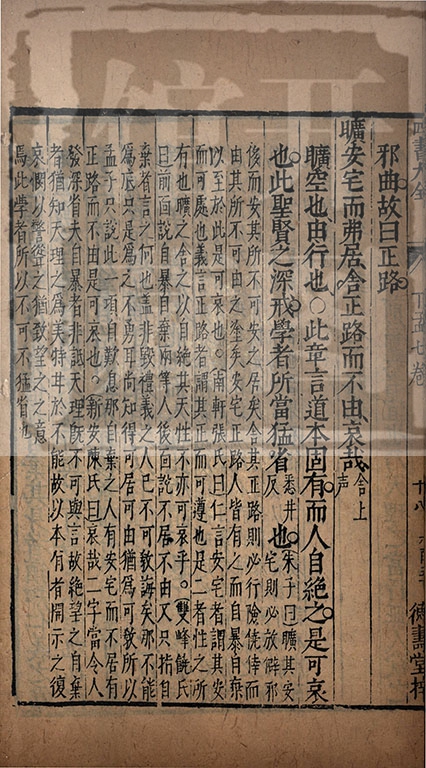 邪曲故曰正路
曠安宅而弗居舍正路而不由哀哉舍上
声
曠空也由行也○此章言道本固有而人自絕之是可哀
也此聖賢之深戒學者所當猛省悉井
反也朱子曰曠其安
宅則必放僻邪
後而安其所不可安之居矣舍其正路則必行險僥倖而
由其所不可由之塗矣安宅正路人皆有之而自暴自棄
以至於此是可哀也○南軒張氏曰仁言安宅者謂其安
而可處也義言正路者謂其正而可遵也是二者性之所
有也曠之舍之以自絕其天性不亦可哀乎○雙峰饒氏
曰前面說自暴自棄兩等人後面說不居不由又只指自
棄者言之何也蓋非毀禮義之人已不可敎誨矣那不能
為底只是為之不勇耳尚知得可居可由猶為可敎所以
孟子只說此一項自歎息那自棄之人有安宅而不居有
正路而不由是可哀也○新安陳氏曰哀哉二字當令人
發深省夫自暴者非詆天理旣不可與言故絕望之自棄
者猶知天理之為美特甘於不能故以本有者開示之復
哀閔以警覺之猶致望之之意
焉此學者所以不可不猛省也
四書大全
下孟七卷
十八
德壽堂梓